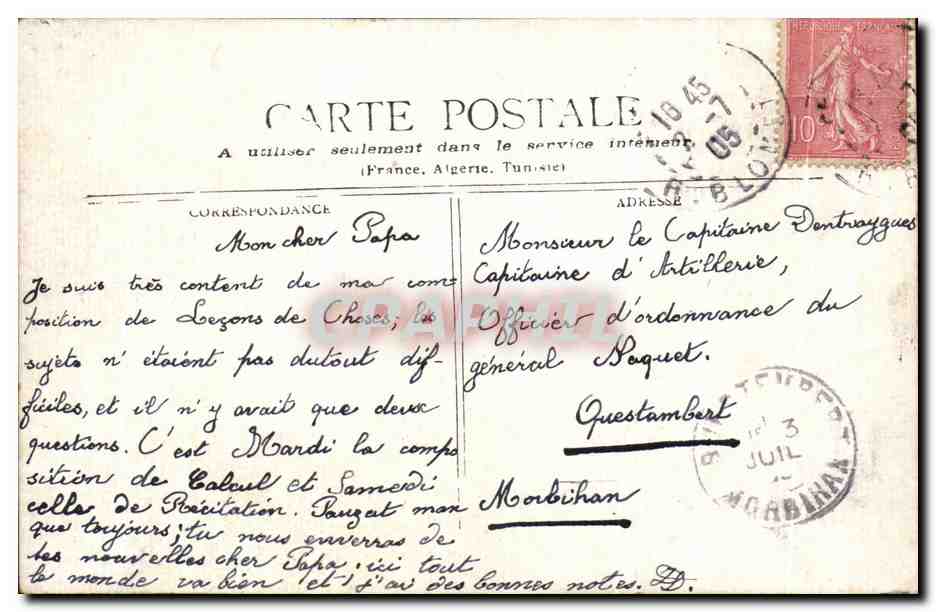 RÉPUBLIQUE FRANÇAISE
10
16 45
2 -7
05
BLOM
CARTE POSTALE
A utiliser seulement dans le service intérieur
(France, Algerie, Tunisie)
CORRESPONDANCE
Mon cher Papa
Je suis très content de ma com-
position de Leçons de Choses; les
sujets n'étaient pas dutout dif-
ficiles, et il n'y avait que deux
questions. C'est Mardi la compo
sition de Calcul et Samedi
celle de Récitation.
que toujours; tu nous enverras de
tes nouvelles cher Papa. ici tout
le monde va bien et j'ai des bonnes notes. 
ADRESSE
Monsieur le Capitaine Dentraygues
Capitaine d'Artillerie,
Officier d'ordonnance du
général Naquet.
Questambert
Morbihan
3
JUIL
MORBIHAN
CPAPHIL